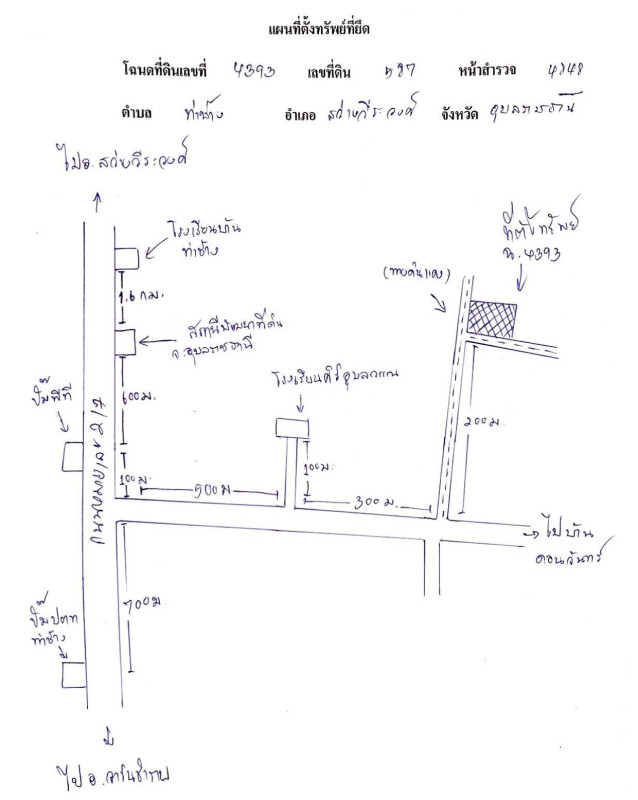 แผนที่ตั้งทรัพย์ที่ยึด
โฉนดที่ดินเลขที่ 4393 เลขที่ดิน 587 หน้าสำรวจ 4848
ตำบล ท่าช้าง อำเภอ สว่างวีระวงศ์ จังหวัด อุบลราชธานี
ไป อ.สว่างวีระวงศ์
โรงเรียนบ้าน
ท่าช้าง
ที่ตั้งทรัพย์
ฉ.4393
(ทางดินแดง)
1.6 กม.
สถานีพัฒนาที่ดิน
จ.อุบลราชธานี
ปั๊มพีที
600 ม.
200 ม.
100 ม.
100 ม.
500 ม
300 ม.
ถนนหมายเลข 217
ไปบ้าน
ดอนจันทร์
700 ม
ปั๊มปตท
ท่าช้าง
ไป อ.วารินชำราบ